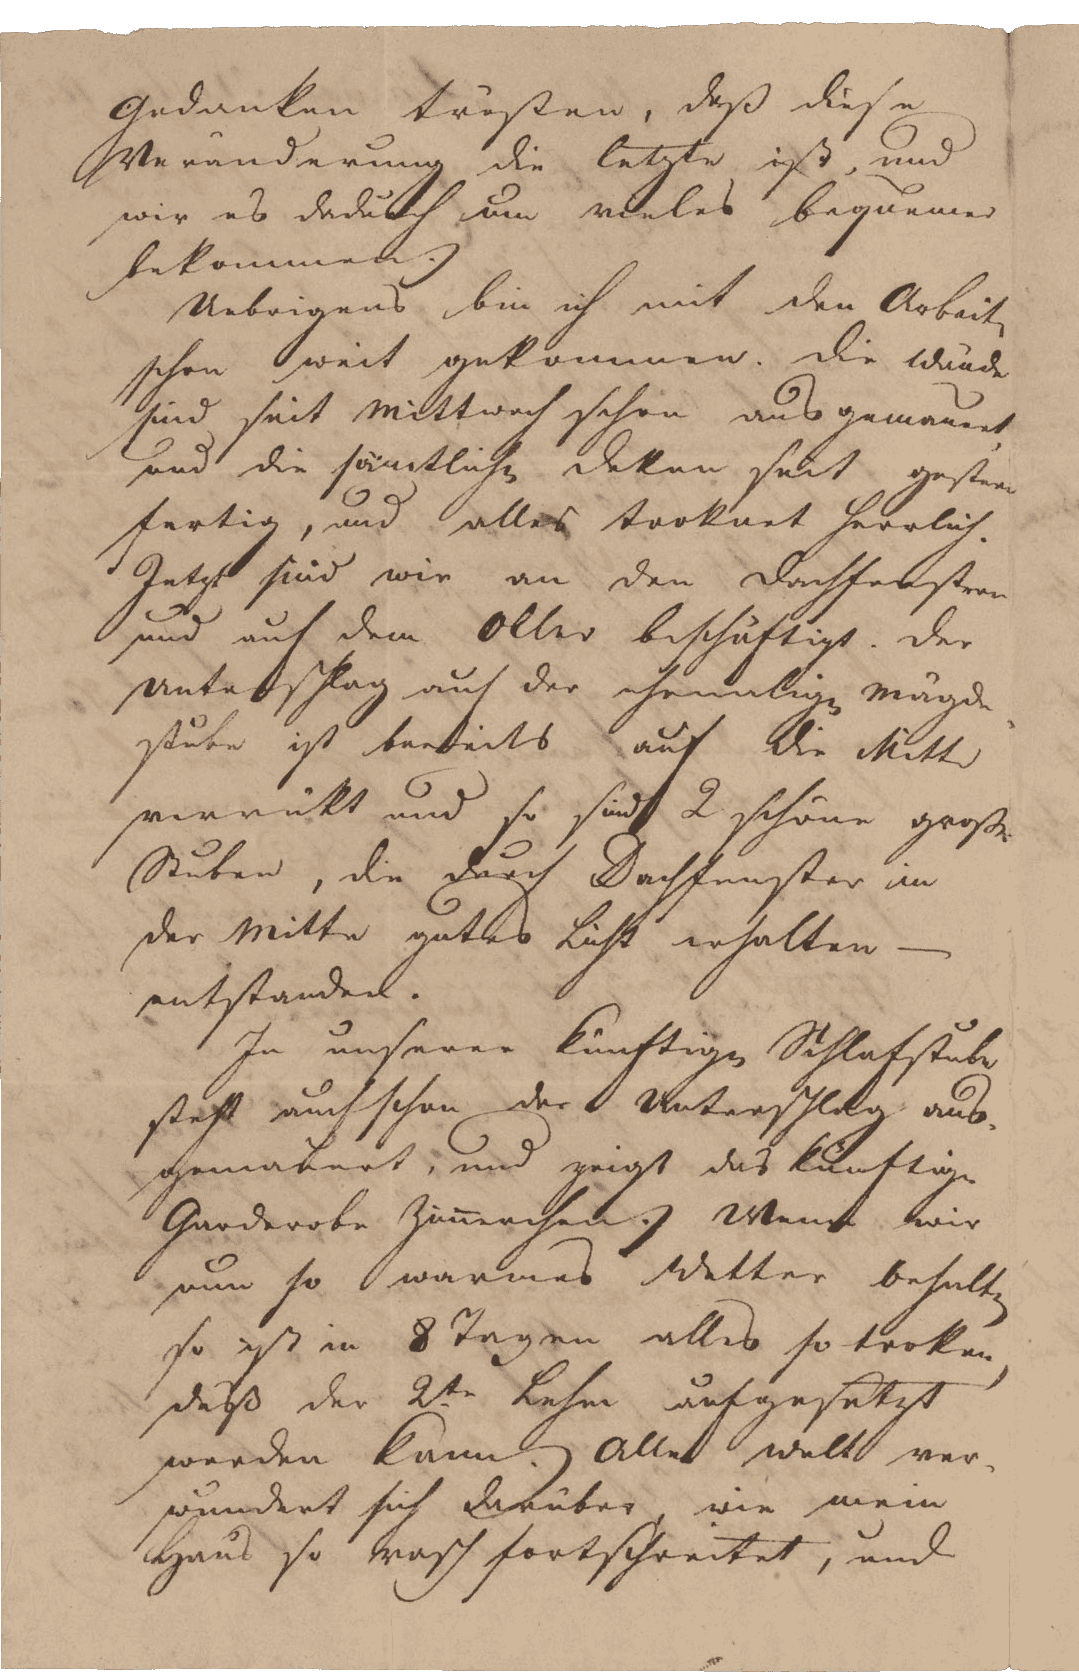 Gedanken trösten, daß diese
Veränderung die letzte ist, und
wir es dadurch um vieles bequemer
bekommen.
Uebrigens bin ich mit den Arbeiten
schon weit gekommen. Die Wände
sind seit Mittwoch schon ausgemauert,
und die sämtlichen Deken seit gestern
fertig, und alles troknet herrlich.
Jetzt sind wir an den Dachfenstern
und auf dem Oller beschäftigt. Der
Unterschlag auf der ehemaligen Mägde-
stube ist bereits auf die Mitte
verrükt und so sind 2 schöne große
Stuben, die durch Dachfenster in
der Mitte gutes Licht erhalten —
entstanden.
In unserer künftigen Schlafstube
steht auch schon der Unterschlag aus-
gemauert, und zeigt das künftige
Garderobe Zimmerchen. Wenn wir
nun so warmes Wetter behalten
so ist in 8 Tagen alles so troken,
daß der 2te Lehm aufgesetzt
werden kann. Alle Welt ver-
wundert sich darüber, wie mein
Haus so rasch fortschreitet, und